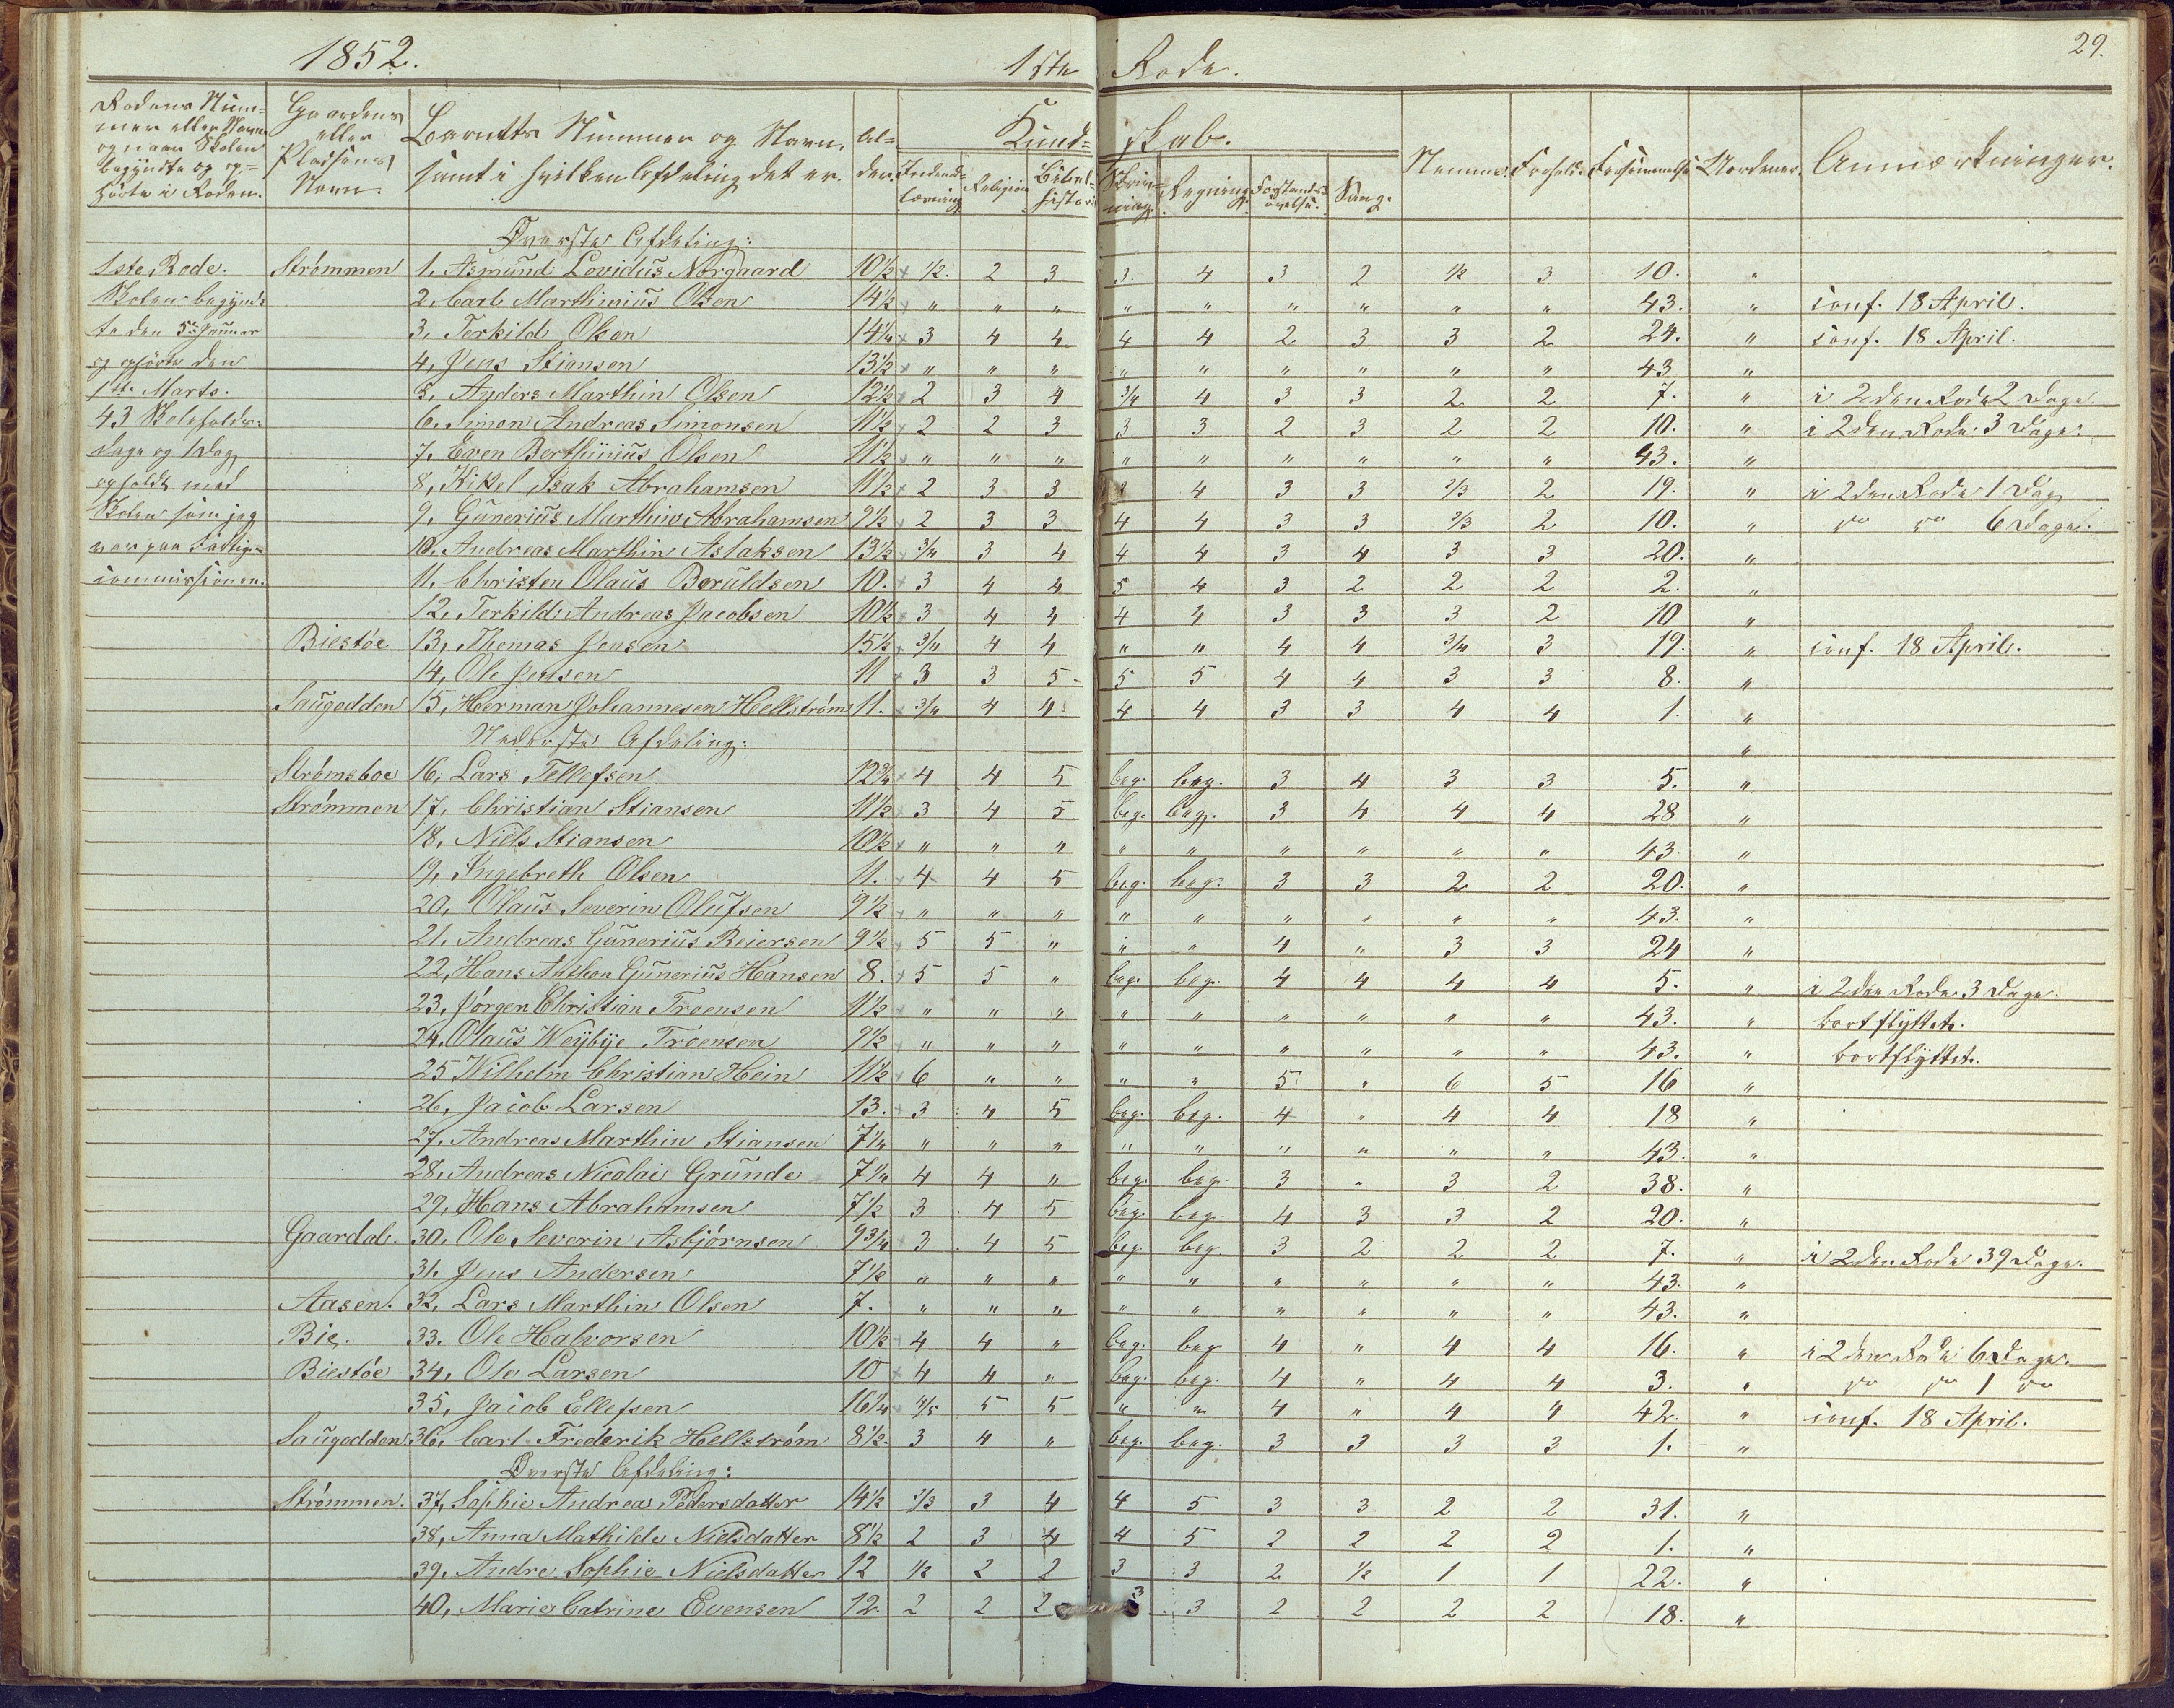 1852. 1ste Rode. 29.
Rodens Num- Gaardens Barnets Nummer og Navn, Al- Kund- skab. Nemme. Forhold. Forsømmelse. Anmærkninger.
mer eller Navn eller samt i hvilken Afdeling det er. der. Indenads- Religion Bibel- Skriv- Regning. Forstands- Sang.
og naar Skolen Pladsens læsning historie ning. øvelse.
begyndte og op- Navn.
hørte i Roden.
Øverste Afdeling:
1ste Rode. Strømmen 1, Asmund Levidus Norgaard 10½ ½ 2 3 3 4 3 2 ½ 3 10. "
Skolen begynd- 2, Carl Marthinius Olsen 14½ " " " " " " " " " 43. " conf. 18 April.
te den 5te Januar 3, Terkild Olsen 14¼ 3 4 4 4 4 2 3 3 2 24. " conf. 18 April.
og ophørte den 4, Jens Stiansen 13½ " " " " " " " " " 43 "
1ste Marts. 5, Anders Marthin Olsen 12½ 2 3 4 3/4 4 3 3 2 2 7. " i 2den Rode 2 Dage
43 Skoleholds- 6, Simon Andreas Simonsen 11½ 2 2 3 3 3 2 3 2 2 10. " i 2den Rode 3 Dage.
dage og 1 Dag 7, Even Berthinius Olsen 11½ " " " " " " " " " 43. "
opholdt med 8, Kittel Isak Abrahamsen 11½ 2 3 3 4 3 3 2/3 2 19. " i 2den Rode 1 Dag
Skolen som jeg 9, Gunerius Marthin Abrahamsen 9½ 2 3 3 4 4 3 3 2/3 2 10. " do do 6 Dage.
var paa Fattig- 10, Andreas Marthin Aslaksen 13½ 3/4 3 4 4 4 3 4 3 3 20. "
commissionen. 11, Christen Olaus Beruldsen 10. 3 4 4 5 4 3 2 2 2 2. "
12, Terkild Andreas Jacobsen 10½ 3 4 4 4 4 3 3 3 2 10 "
Biestøe 13, Thomas Jensen 15½ 3/4 4 4 " " 4 4 3/4 3 19. " conf. 18 April.
14, Ole Jensen 11 3 3 5 5 5 4 4 3 3 8. "
Saugodden 15, Herman Johannesen Hellstrøm 11. 3/4 4 4 4 4 3 3 4 4 1. "
Nederste Afdeling: "
Strømsboe 16, Lars Tellefsen 12¾ 4 4 5 beg. beg. 3 4 3 3 5. "
Strømmen 17, Christian Stiansen 11½ 3 4 5 beg. beg. 3 4 4 4 28 "
18, Niels Stiansen 10½ " " " " " " " " " 43. "
19, Ingebreth Olsen 11. 4 4 5 beg. beg. 3 3 2 2 20. "
20, Olaus Severin Olufsen 9½ " " " " " " " " " 43. "
21, Andreas Gunerius Reiersen 9½ 5 5 " " " 4 " 3 3 24 "
22, Hans Anthon Gunerius Hansen 8. 5 5 " beg. beg. 4 4 4 4 5. " i 2den Rode 3 Dage.
23, Jørgen Christian Troensen 11½ " " " " " " " " " 43. " bortflyttet.
24, Olaus Weybye Troensen 9½ " " " " " " " " " 43. " bortflyttet.
25 Wilhelm Christian Hein 11½ 6 " " " " 5 " 6 5 16 "
26, Jacob Larsen 13. 3 4 5 beg. beg. 4 " 4 4 18 "
27, Andreas Marthin Stiansen 7¼ " " " " " " " " " 43. "
28, Andreas Nicolai Grunde 7¼ 4 4 " beg. beg. 3 " 3 2 38. "
29, Hans Abrahamsen 7½ 3 4 5 beg. beg. 4 3 3 2 20. "
Gaardal. 30, Ole Severin Asbjørnsen 9¾ 3 4 5 beg beg 3 2 2 2 7. " i 2den Rode 39 Dage.
31, Jens Andersen 7½ " " " " " " " " " 43. "
Aasen. 32, Lars Marthin Olsen 7. " " " " " " " " " 43. "
Bie. 33. Ole Halvorsen 10½ 4 4 " beg. beg 4 " 4 4 16. " i 2den Rode 6 Dage.
Biestøe 34, Ole Larsen 10 4 4 " beg. beg. 4 " 4 4 3. " do do 1 do
35, Jacob Ellefsen 16¼ 4/5 5 5 " " 4 " 4 4 42. " conf. 18 April.
Saugodden 36, Carl Frederik Hellstrøm 8½. 3 4 " beg. beg. 3 3 3 3 1. "
Øverste Afdeling:
Strømmen. 37, Sophie Andrea Pedersdatter 14½ 2/3 3 4 4 5 3 3 2 2 31. "
38, Anna Mathilde Nielsdatter 8½ 2 3 4 4 5 2 2 2 2 1. "
39, Andre Sophie Nielsdatter 12 ½ 2 2 3 3 2 ½ 1 1 22. "
40, Marie Catrine Evensen 12. 2 2 2 3 3 2 2 2 2 18. "